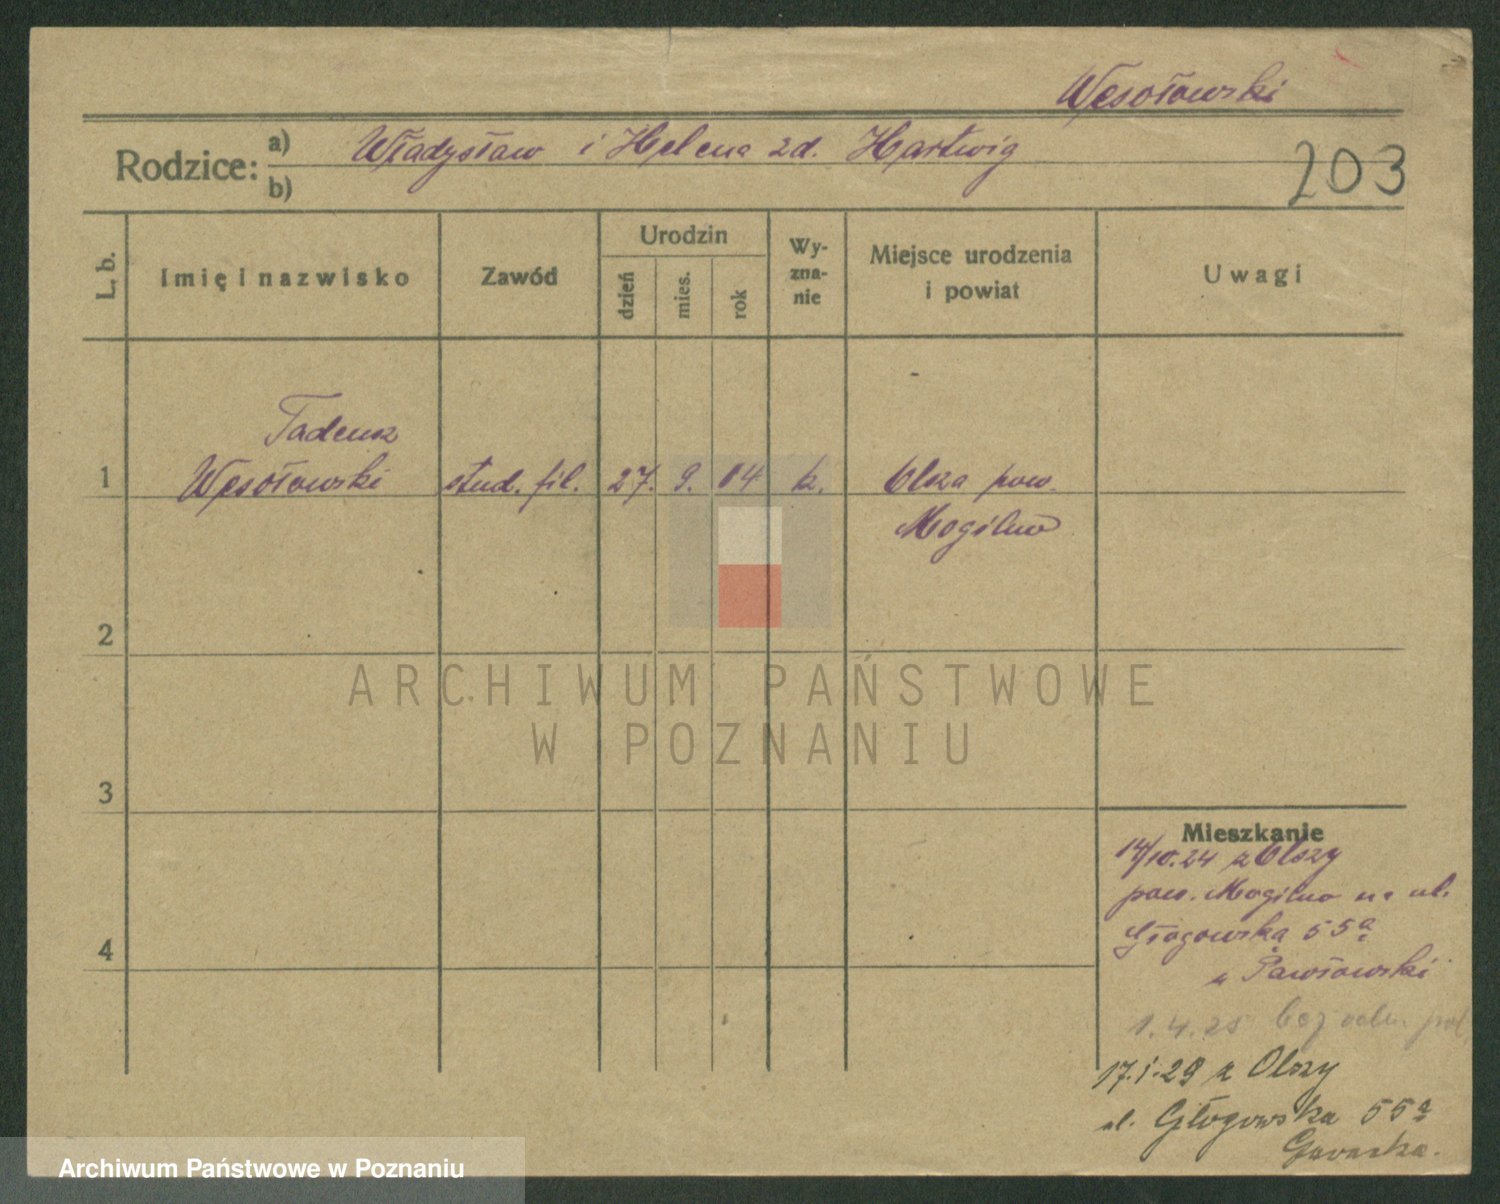 Węsołowski
Rodzice: a) Władysław i Helena zd. Hartwig
b)
203
L. b.
Imię i nazwisko
Zawód
Urodzin
dzień
mies.
rok
Wy-
zna-
nie
Miejsce urodzenia
i powiat
Uwagi
Tadeusz
1 Węsołowski stud. fil. 27. 9. 04 k. Olsza pow.
Mogilno
2
3
4
Mieszkanie
14/10.24 z Olszy
pow. Mogilno na ul.
Głogowska 55a
u Pawłowski
1.4.25 bez
17.1.29 z Olszy
ul. Głogowska 55a
ARCHIWUM PAŃSTWOWE
W POZNANIU
Archiwum Państwowe w Poznaniu